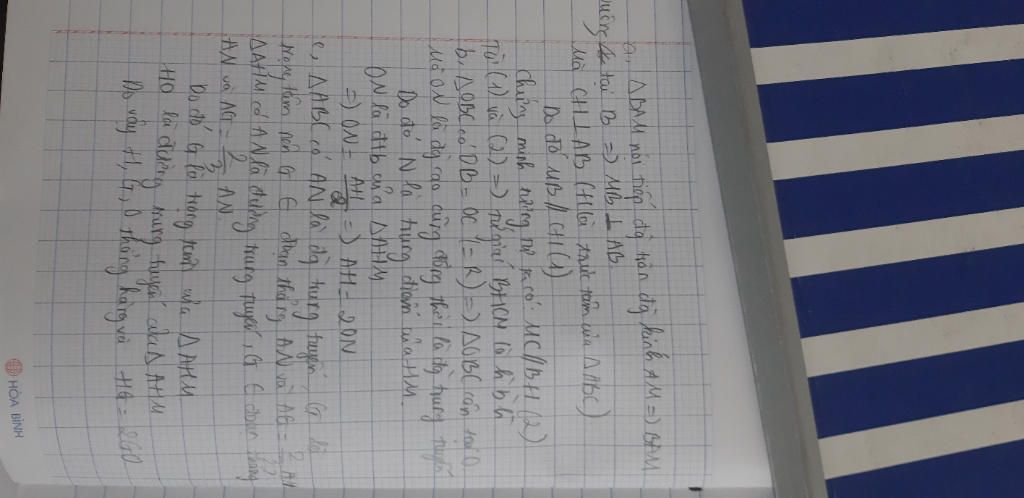 a, ΔBAM nội tiếp đg tròn đg kính AM => ΔBAM
vuông tại B => MB ⊥ AB
Mà CH ⊥ AB (H là trực tâm của ΔABC)
Do đó MB // CH (1)
Chứng minh tương tự ta có: MC // BH (2)
Từ (1) và (2) => tứ giác BHCM là hbh
b, ΔOBC có OB = OC (= R) => ΔOBC cân tại O
Mà ON là đg cao cũng đồng thời là đg trung tuyến
Do đó N là trung điểm của HM.
ON là đtb của ΔAHM
=> ON = AH/2 => AH = 2ON
c, ΔABC có AN là đg trung tuyến G là
trọng tâm nên G ∈ đoạn thẳng AN và AG = 2/3 AN
ΔAHM có AN là đường trung tuyến, G ∈ đoạn thẳng
AN và AG = 2/3 AN
Do đó G là trọng tâm của ΔAHM
HO là đường trung tuyến của ΔAHM
Do vậy H, G, O thẳng hàng và HG = 2GO
HÒA BÌNH